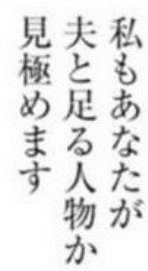 私もあなたが
夫と足る人物か
見極めます